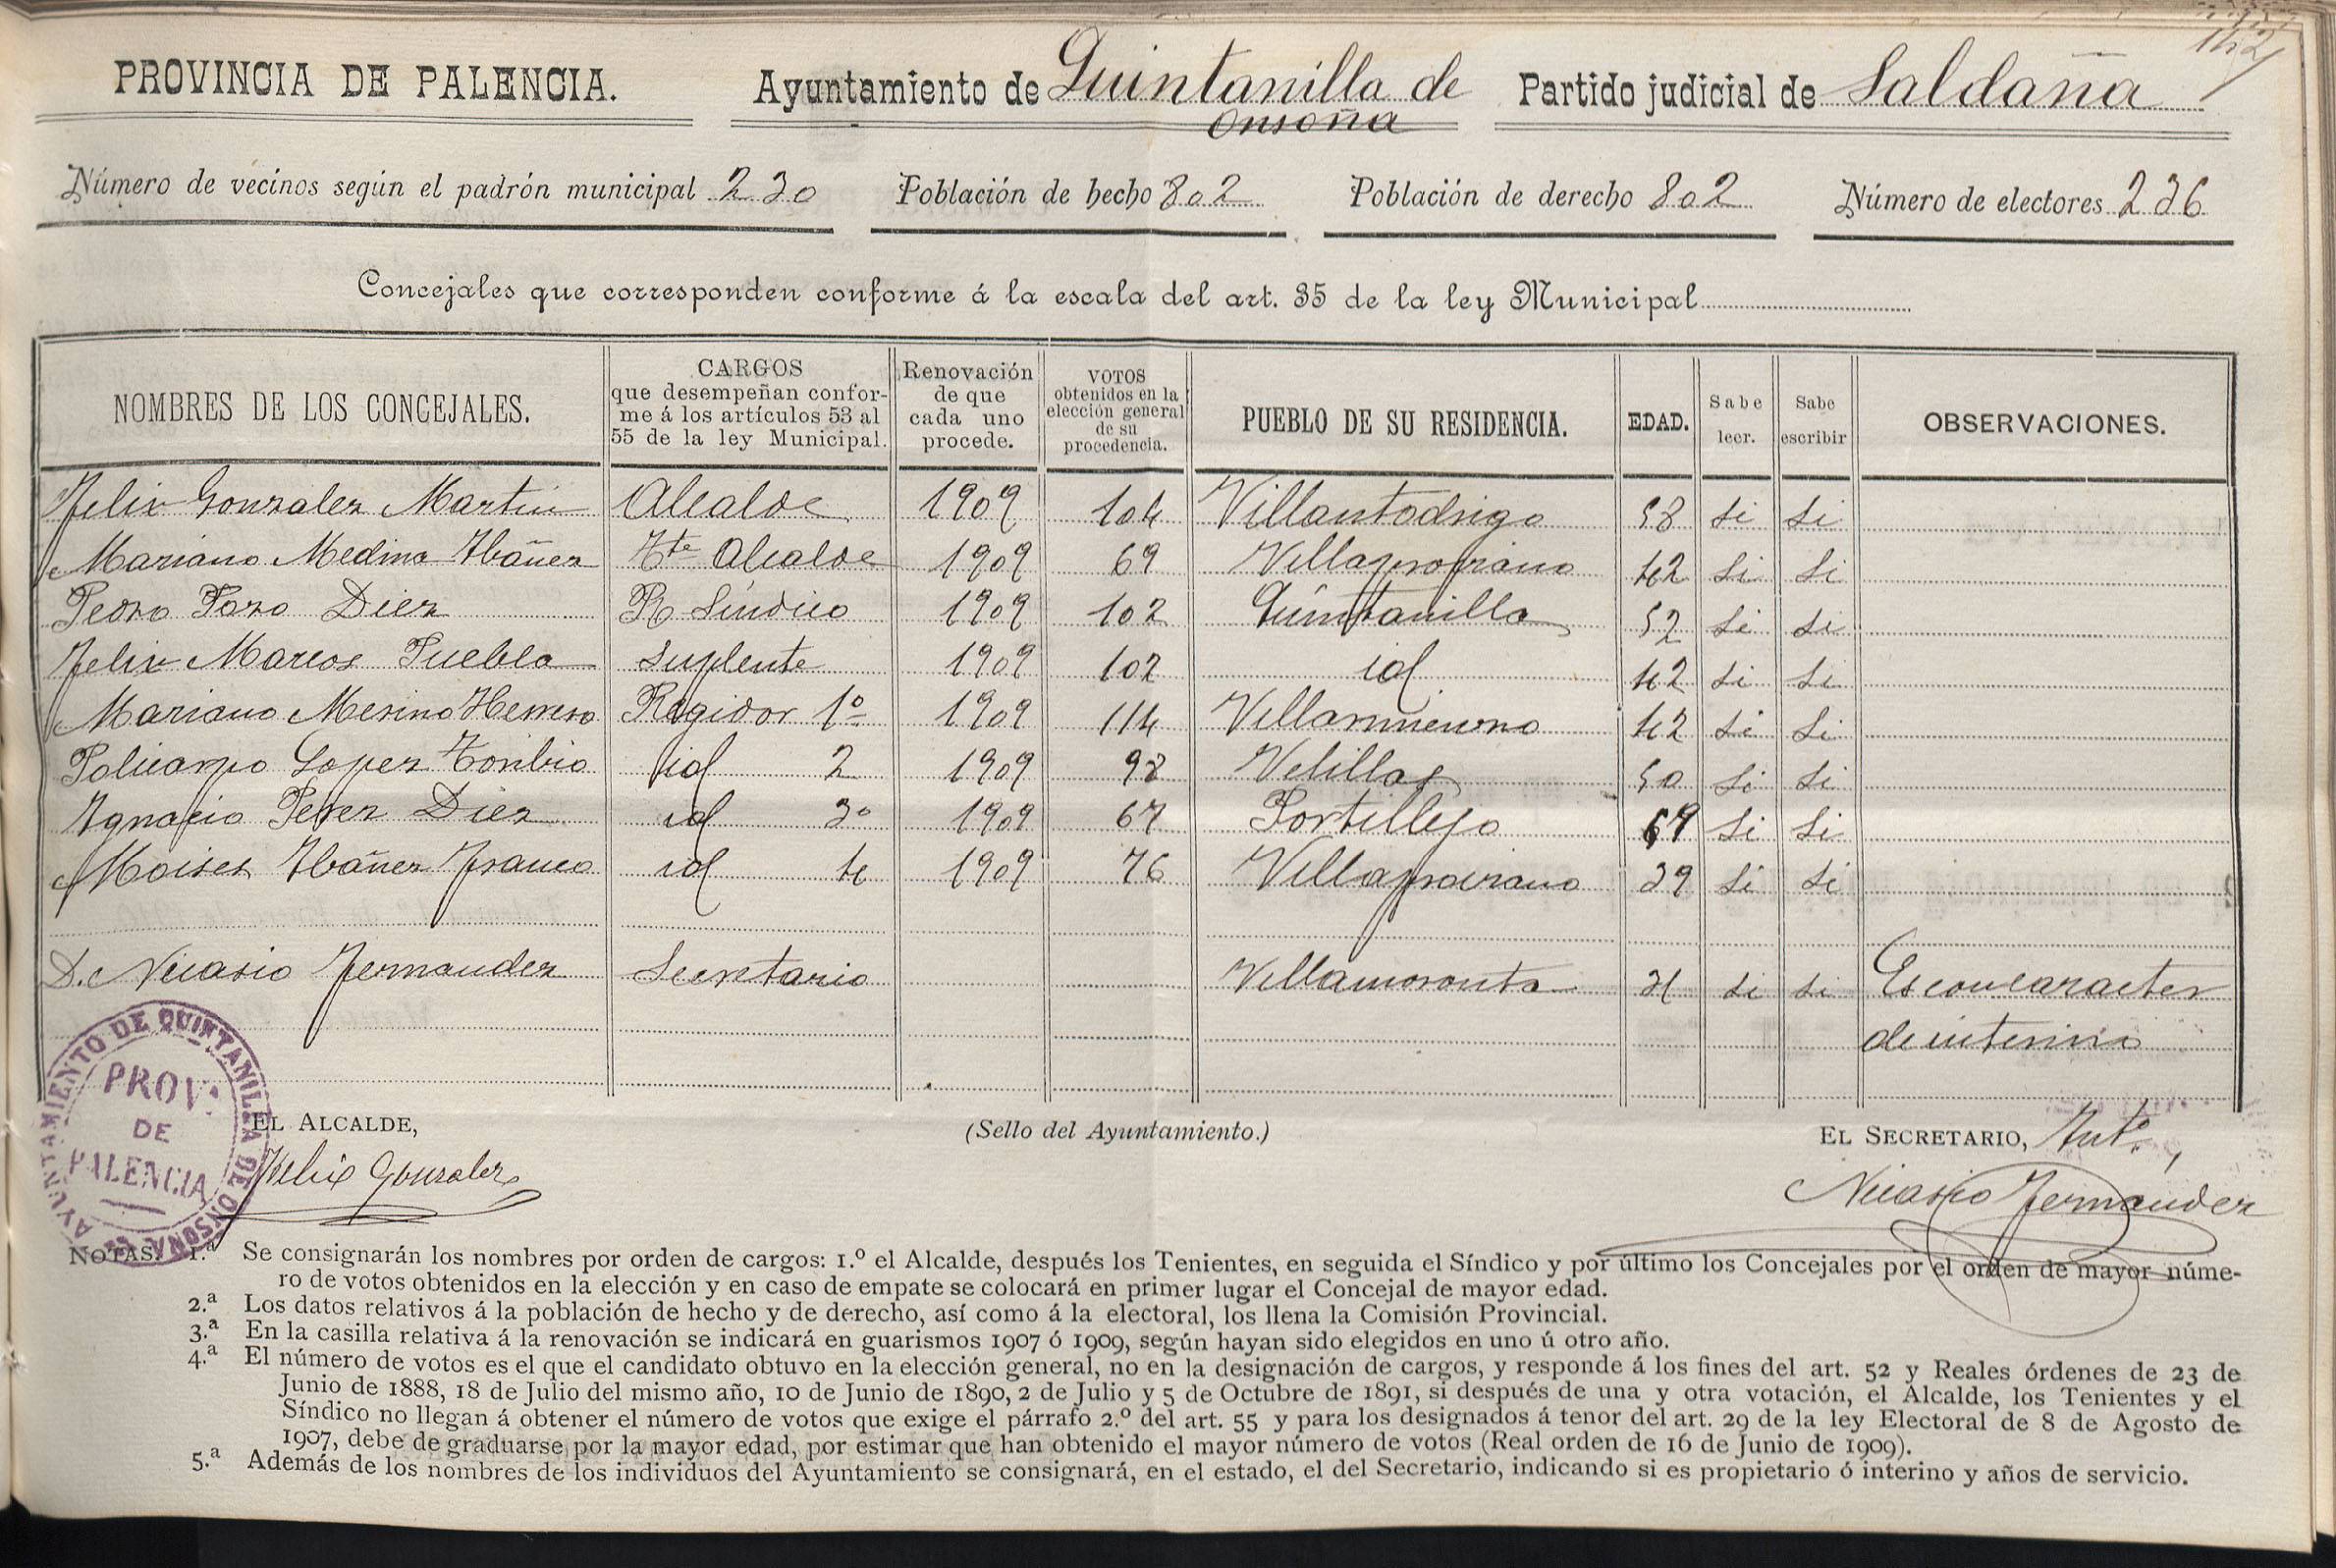 142
PROVINCIA DE PALENCIA. Ayuntamiento de Quintanilla de Onsoña Partido judicial de Saldaña
Número de vecinos según el padrón municipal 230 Población de hecho 802 Población de derecho 802 Número de electores 236
Concejales que corresponden conforme á la escala del art. 35 de la ley Municipal
NOMBRES DE LOS CONCEJALES. CARGOS que desempeñan conforme á los artículos 53 al 55 de la ley Municipal. Renovación de que cada uno procede. VOTOS obtenidos en la elección general de su procedencia. PUEBLO DE SU RESIDENCIA. EDAD. Sabe leer. Sabe escribir OBSERVACIONES.
Felix Gonzalez Martin Alcalde 1909 104 Villantodrigo 58 si si
Mariano Medina Ibáñez Tte Alcalde 1909 69 Villaproviano 42 si si
Pedro Pozo Diez R Síndico 1909 102 Quintanilla 52 si si
Felix Marcos Puebla Suplente 1909 102 id 42 si si
Mariano Merino Herrero Regidor 1º 1909 114 Villarmienzo 42 si si
Policarpo Lopez Toribio id 2 1909 98 Velillas 50 si si
Ignacio Perez Diez id 3º 1909 67 Portillejo 69 si si
Moises Ibáñez Franco id 4 1909 76 Villaproviano 39 si si
D. Nicasio Fernandez Secretario Villamoronta 31 si si Es con caracter
de interino
AYUNTAMIENTO DE QUINTANILLA DE ONSOÑA
PROV. DE PALENCIA
EL ALCALDE, (Sello del Ayuntamiento.) EL SECRETARIO, Intº,
Felix Gonzalez Nicasio Fernandez
NOTAS. 1.ª Se consignarán los nombres por orden de cargos: 1.º el Alcalde, después los Tenientes, en seguida el Síndico y por último los Concejales por el orden de mayor núme-
ro de votos obtenidos en la elección y en caso de empate se colocará en primer lugar el Concejal de mayor edad.
2.ª Los datos relativos á la población de hecho y de derecho, así como á la electoral, los llena la Comisión Provincial.
3.ª En la casilla relativa á la renovación se indicará en guarismos 1907 ó 1909, según hayan sido elegidos en uno ú otro año.
4.ª El número de votos es el que el candidato obtuvo en la elección general, no en la designación de cargos, y responde á los fines del art. 52 y Reales órdenes de 23 de
Junio de 1888, 18 de Julio del mismo año, 10 de Junio de 1890, 2 de Julio y 5 de Octubre de 1891, si después de una y otra votación, el Alcalde, los Tenientes y el
Síndico no llegan á obtener el número de votos que exige el párrafo 2.º del art. 55 y para los designados á tenor del art. 29 de la ley Electoral de 8 de Agosto de
1907, debe de graduarse por la mayor edad, por estimar que han obtenido el mayor número de votos (Real orden de 16 de Junio de 1909).
5.ª Además de los nombres de los individuos del Ayuntamiento se consignará, en el estado, el del Secretario, indicando si es propietario ó interino y años de servicio.